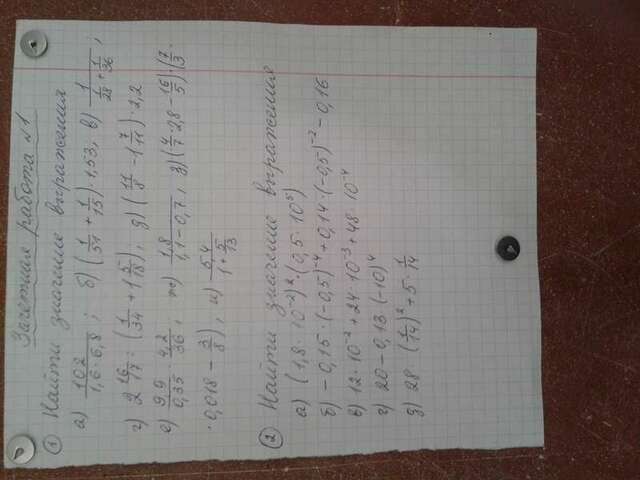 Зачетная работа №1
① Найти значение выражения
а) 102/(1,6·6,8); б) (1/51 + 1/15)·1,53, в) 1/(1/28 + 1/36);
г) 2 16/17 : (1/34 + 1 5/18), д) (11/8 - 1 7/11)·2,2
е) 9,9/0,35 · 4,2/36, ж) 1,8/(1,1-0,7, з) (4/7·2,8 - 16/5)·(7/3 ·
·0,018 - 3/8), и) 5,4/(1+ 5/13)
② Найти значение выражения
а) (1,8·10⁻²)²·(0,5·10⁵)
б) -0,15·(-0,5)⁻⁴+0,14·(-0,5)⁻²-0,16
в) 12·10⁻²+24·10⁻³+48·10⁻⁴
г) 20-0,13(-10)⁴
д) 28·(1/14)²+5·1/14